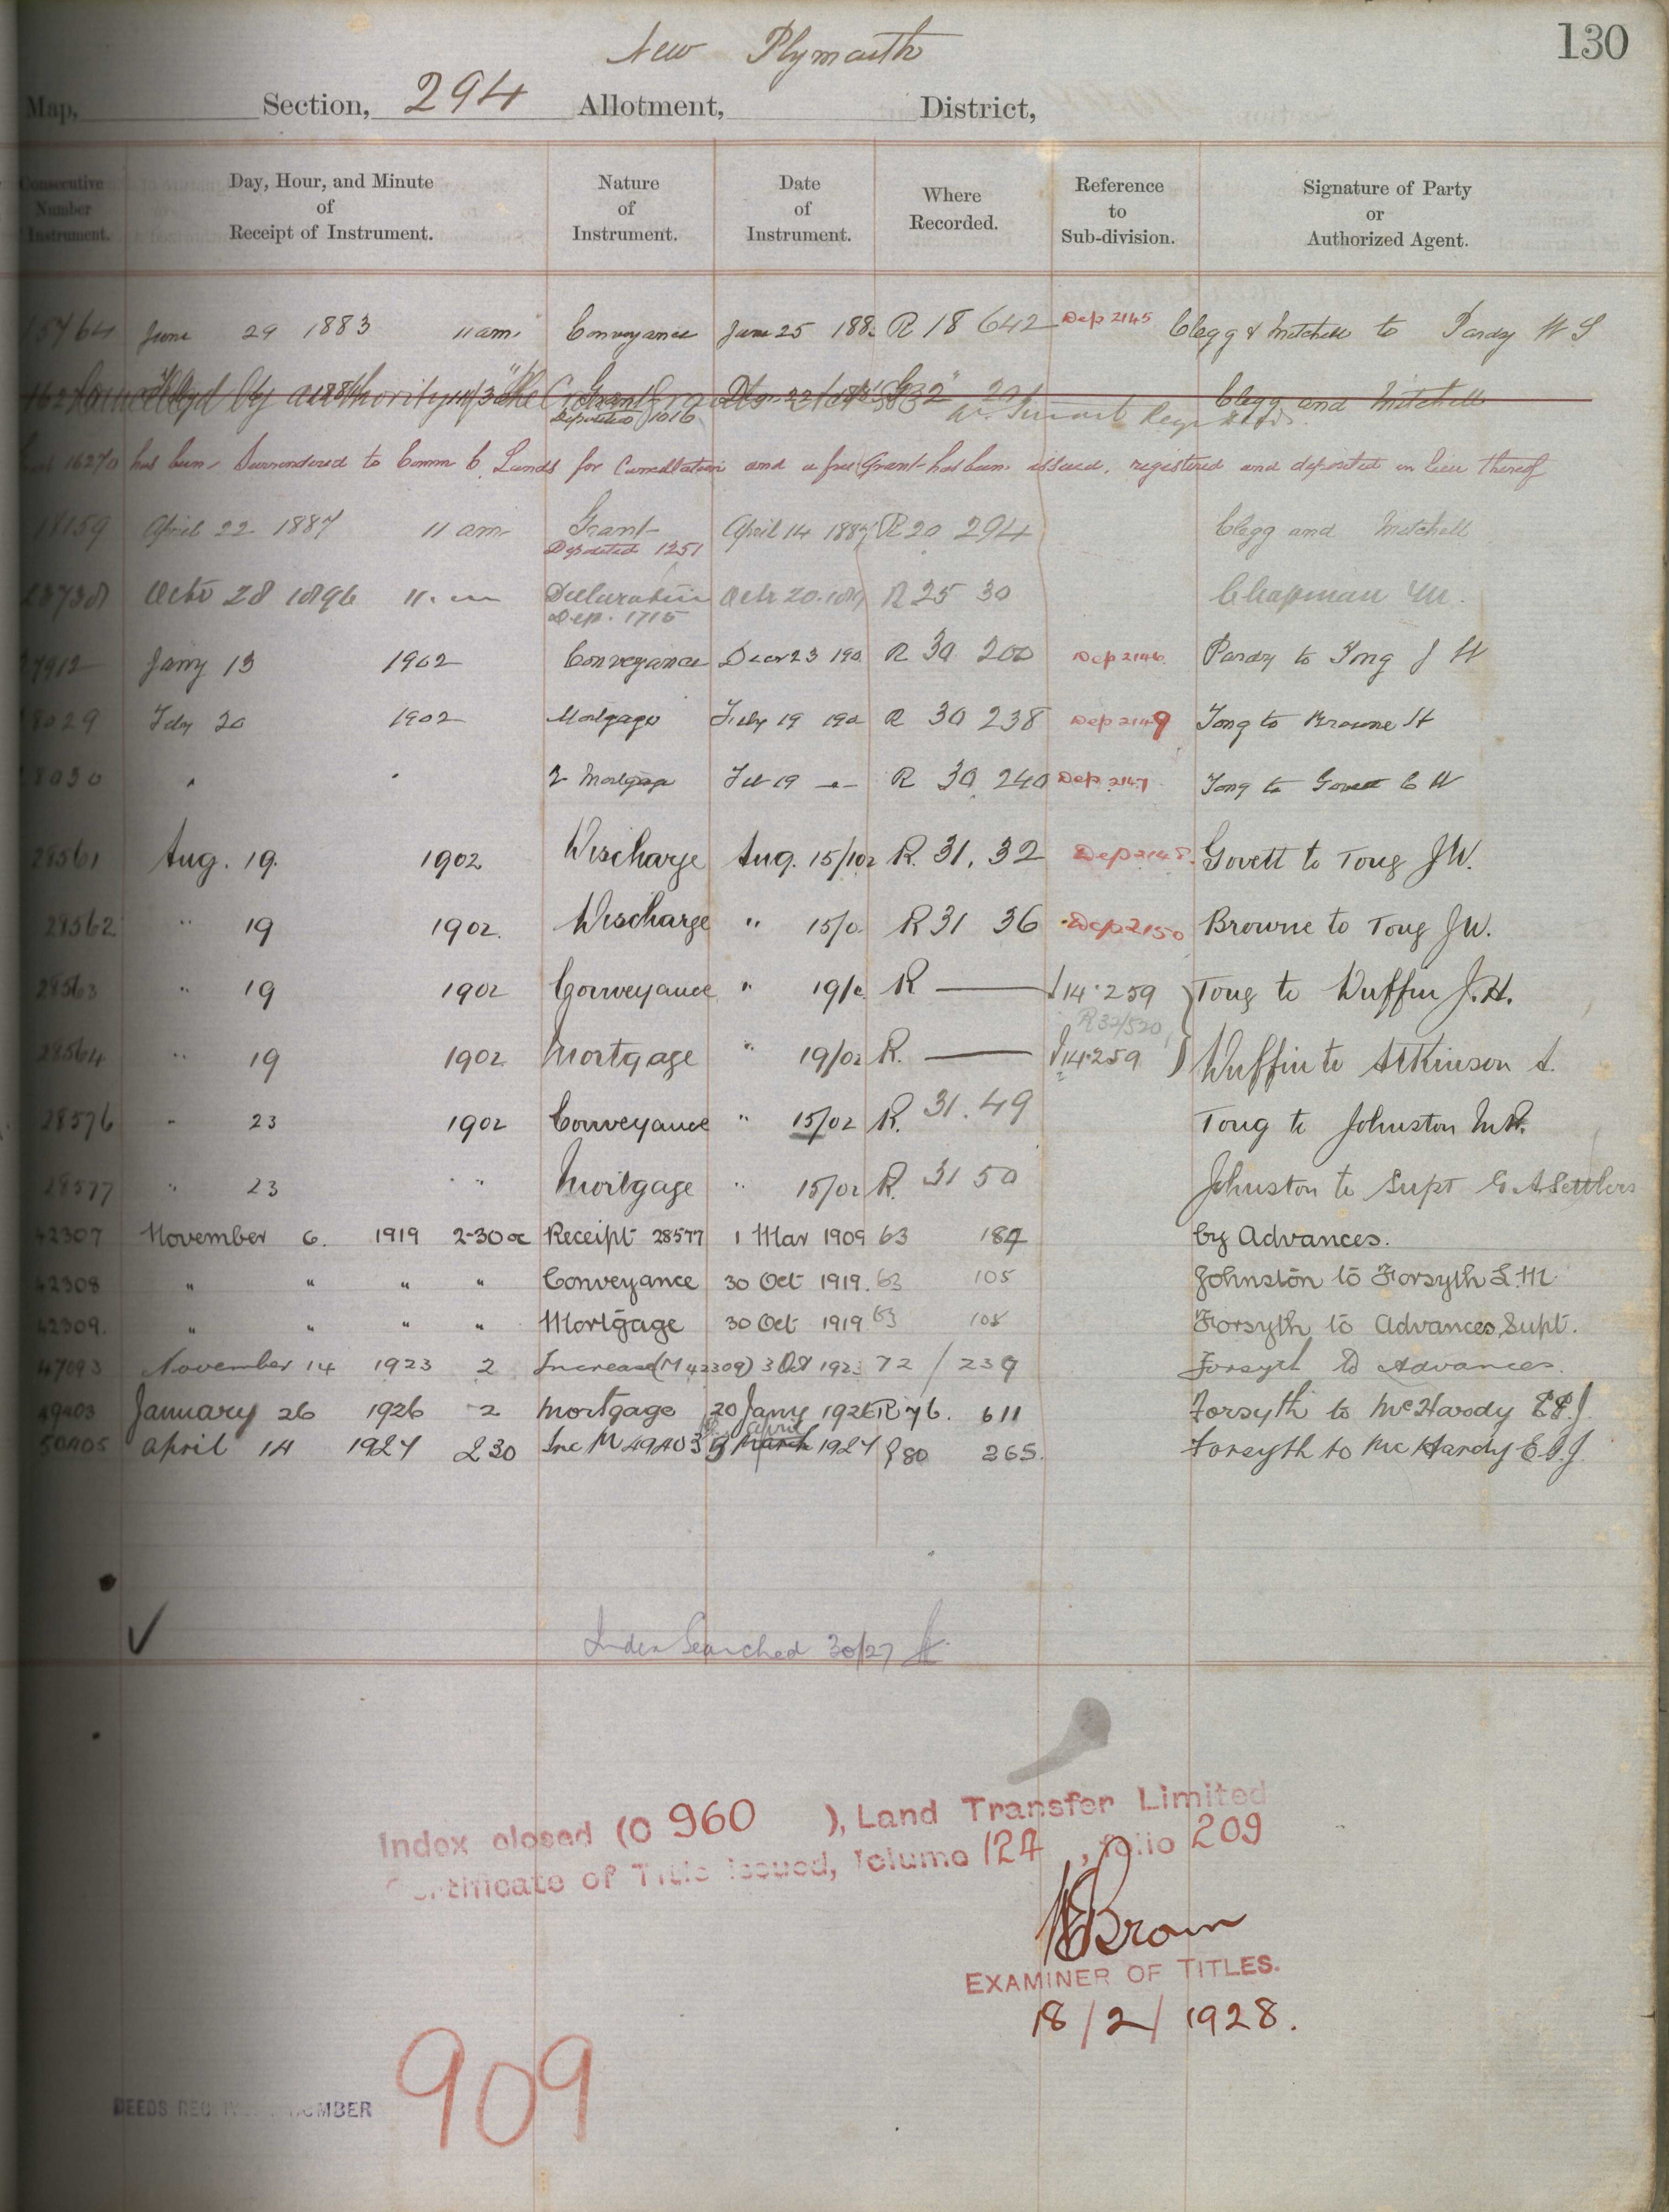 130
New Plymouth
Map, Section, 294 Allotment, District,
Consecutive Number Instrument. Day, Hour, and Minute of Receipt of Instrument. Nature of Instrument. Date of Instrument. Where Recorded. Reference to Sub-division. Signature of Party or Authorized Agent.
15764 June 29 1883 11am. Conveyance June 25 188 R 18 642 Dep 2145 Clegg & Mitchell to Pardy W S
Cancelled by authority of "The Crown Grants Act Clegg and Mitchell
Deposited 1016
16270 has been Surrendered to Comm C. Lands for Cancellation and a free Grant has been issued, registered and deposited in lieu thereof
18159 April 22 1887 11 am Grant April 14 1887 R 20 294 Clegg and Mitchell
Deposited 1251
Octr 28 1896 11. am Declaration Octr 20. 189 R 25 30 Chapman
Dep. 1715
27912 Jany 13 1902 Conveyance Decr 23 190 R 30 200 Dep 2146. Pardy to Tong J W
28029 Feby 20 1902 Mortgage Feby 19 190 R 30 238 Dep 2149 Tong to Browne H
28030 " " 2 Mortgage Feb 19 R 30 240 Dep 2147 Tong to Govett C W
28561 Aug. 19. 1902 Discharge Aug. 15/02 R. 31. 32 Dep 2148. Govett to Tong J W.
28562 " 19 1902. Discharge " 15/0 R 31 36 Dep 2150 Browne to Tong J W.
28563 " 19 1902 Conveyance " 19/0 R — I 14.259 Tong to Duffin J. H.
R 32/520
28564 " 19 1902. Mortgage " 19/02 R. — I 14.259 Duffin to Atkinson A.
28576 " 23 1902 Conveyance " 15/02 R. 31. 49 Tong to Johnston
28577 " 23 " " Mortgage " 15/02 R. 31 50 Johnston to Supt G A Settlers
42307 November 6. 1919 2-30 Receipt 28577 1 Mar 1909 63 184 by Advances.
42308 " " " " Conveyance 30 Oct 1919. 63 105 Johnston to Forsyth L. M
42309. " " " " Mortgage 30 Oct 1919 63 108 Forsyth to Advances, Supt.
47093 November 14 1923 2 Increase (M 42309) 3 Oct 1923 72 / 239 Forsyth to Advances.
49403 January 26 1926 2 Mortgage 20 Jany 1926 R 76. 611 Forsyth to McHardy E P. J
50405 April 14 1927 2 30 Inc M 49403 March April 1927 R 80 265. Forsyth to McHardy E. P. J.
Index Searched 30/27
Index closed (O 960 ), Land Transfer Limited
Certificate of Title issued, Volume 124 , folio 209
Brown
EXAMINER OF TITLES.
18/2/1928.
DEEDS NUMBER 909